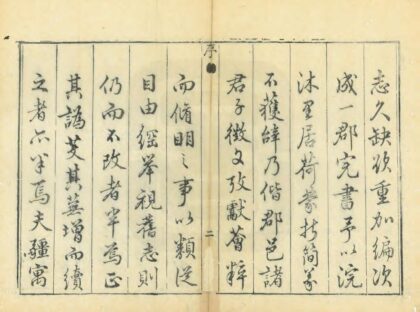 志久缺欲重加编次
成一郡完書予以浣
沐里居荷藜拊簡義
不獲辭乃偕郡邑諸
序
二
君子徵文攷獻薈粹
而脩明之事以類從
目由綱舉視舊志則
仍而不改者半焉正
其譌芟其蕪增而續
之者亦半焉夫疆寓